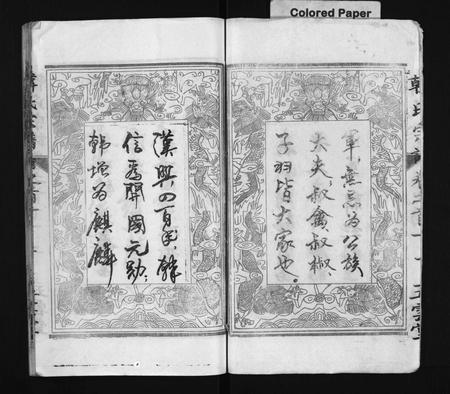 Colored Paper
軍、無忌为公族
大夫、叔禽叔椒
子羽皆大家也、
漢興四百年、韓
信爲開國元勛、
韓增为麒麟
韓氏宗